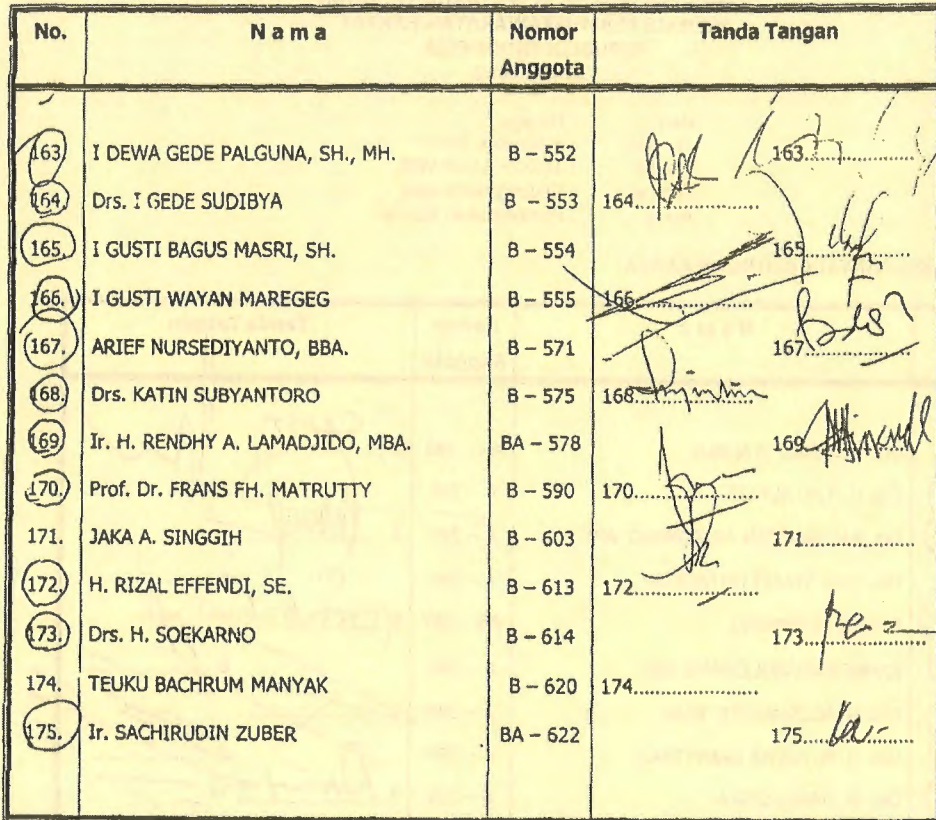 No. Nama Nomor Anggota Tanda Tangan
163. I DEWA GEDE PALGUNA, SH., MH. B – 552 163...............
164. Drs. I GEDE SUDIBYA B – 553 164...............
165. I GUSTI BAGUS MASRI, SH. B – 554 165...............
166. I GUSTI WAYAN MAREGEG B – 555 166...............
167. ARIEF NURSEDIYANTO, BBA. B – 571 167...............
168. Drs. KATIN SUBYANTORO B – 575 168...............
169. Ir. H. RENDHY A. LAMADJIDO, MBA. BA – 578 169...............
170. Prof. Dr. FRANS FH. MATRUTTY B – 590 170...............
171. JAKA A. SINGGIH B – 603 171...............
172. H. RIZAL EFFENDI, SE. B – 613 172...............
173. Drs. H. SOEKARNO B – 614 173...............
174. TEUKU BACHRUM MANYAK B – 620 174...............
175. Ir. SACHIRUDIN ZUBER BA – 622 175...............